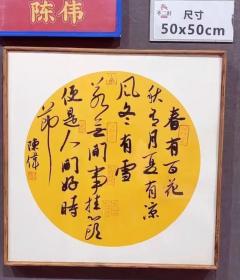 陈伟
尺寸
50x50cm
春有百花
秋有月夏有凉
風冬有雪
若無閒事挂心頭
便是人間好時
節
陳偉